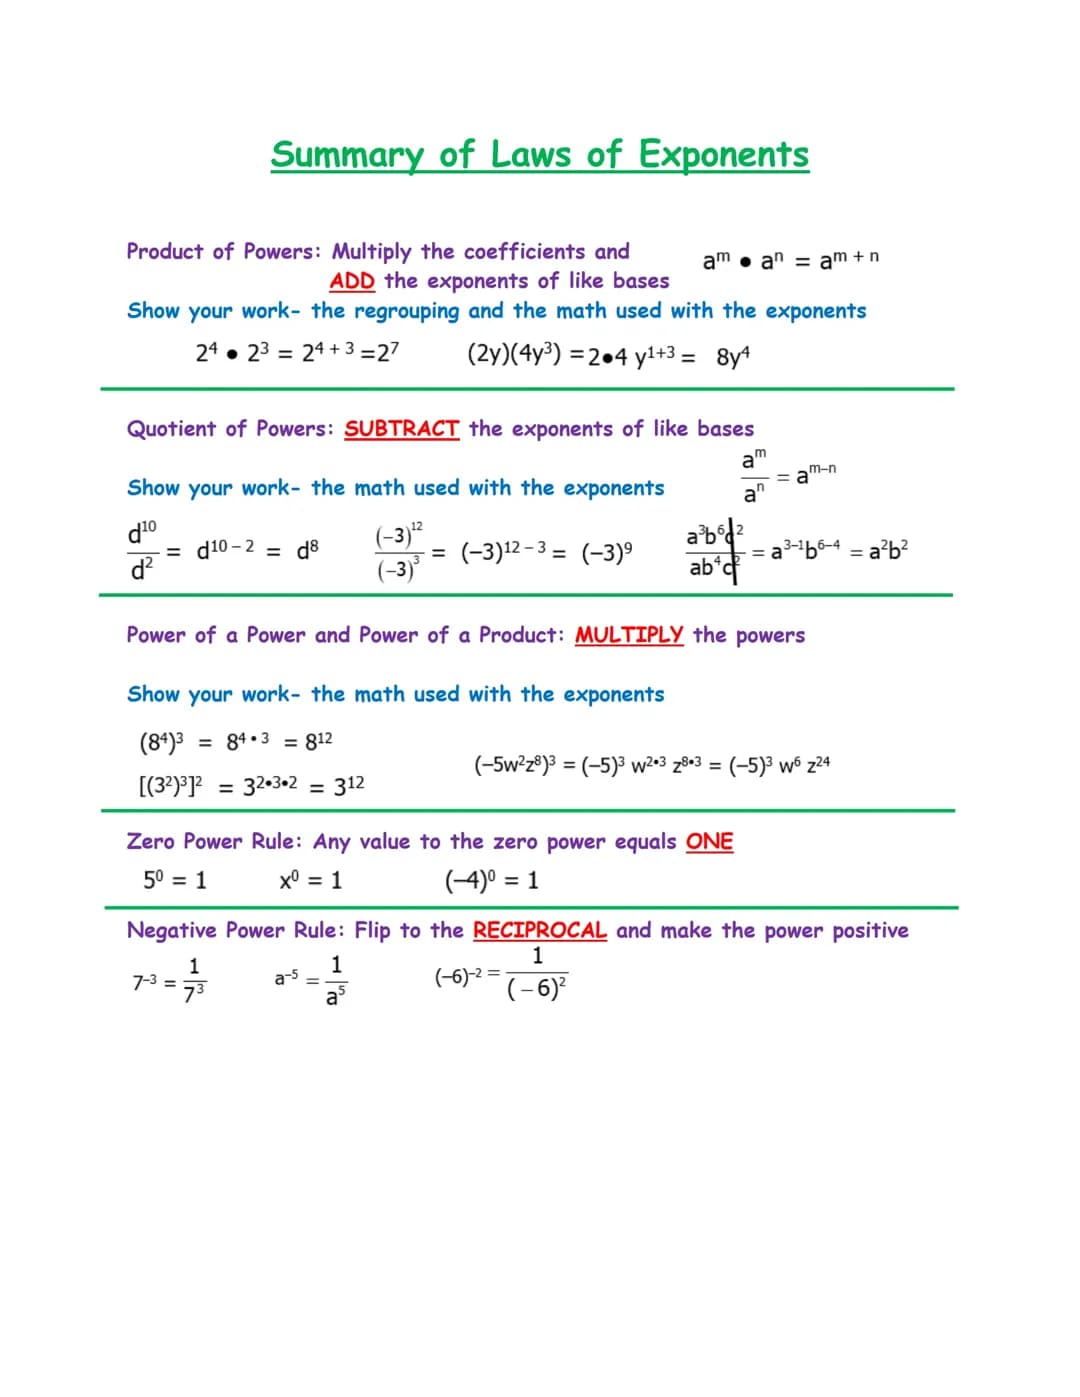 Summary of Laws of Exponents
Product of Powers: Multiply the coefficients and
ADD the exponents of like bases
aᵐ • aⁿ = aᵐ ⁺ ⁿ
Show your work- the regrouping and the math used with the exponents
2⁴ • 2³ = 2⁴ ⁺ ³ =2⁷ (2y)(4y³) =2•4 y¹⁺³ = 8y⁴
Quotient of Powers: SUBTRACT the exponents of like bases
aᵐ/aⁿ = aᵐ⁻ⁿ
Show your work- the math used with the exponents
d¹⁰/d² = d¹⁰ ⁻ ² = d⁸ (-3)¹²/(-3)³ = (-3)¹² ⁻ ³ = (-3)⁹ a³b⁶c²/ab⁴c² = a³⁻¹b⁶⁻⁴ = a²b²
Power of a Power and Power of a Product: MULTIPLY the powers
Show your work- the math used with the exponents
(8⁴)³ = 8^(4•3) = 8¹²
(-5w²z⁸)³ = (-5)³ w^(2•3) z^(8•3) = (-5)³ w⁶ z²⁴
[(3²)³]² = 3^(2•3•2) = 3¹²
Zero Power Rule: Any value to the zero power equals ONE
5⁰ = 1 x⁰ = 1 (-4)⁰ = 1
Negative Power Rule: Flip to the RECIPROCAL and make the power positive
7⁻³ = 1/7³ a⁻⁵ = 1/a⁵ (-6)⁻² = 1/(-6)²